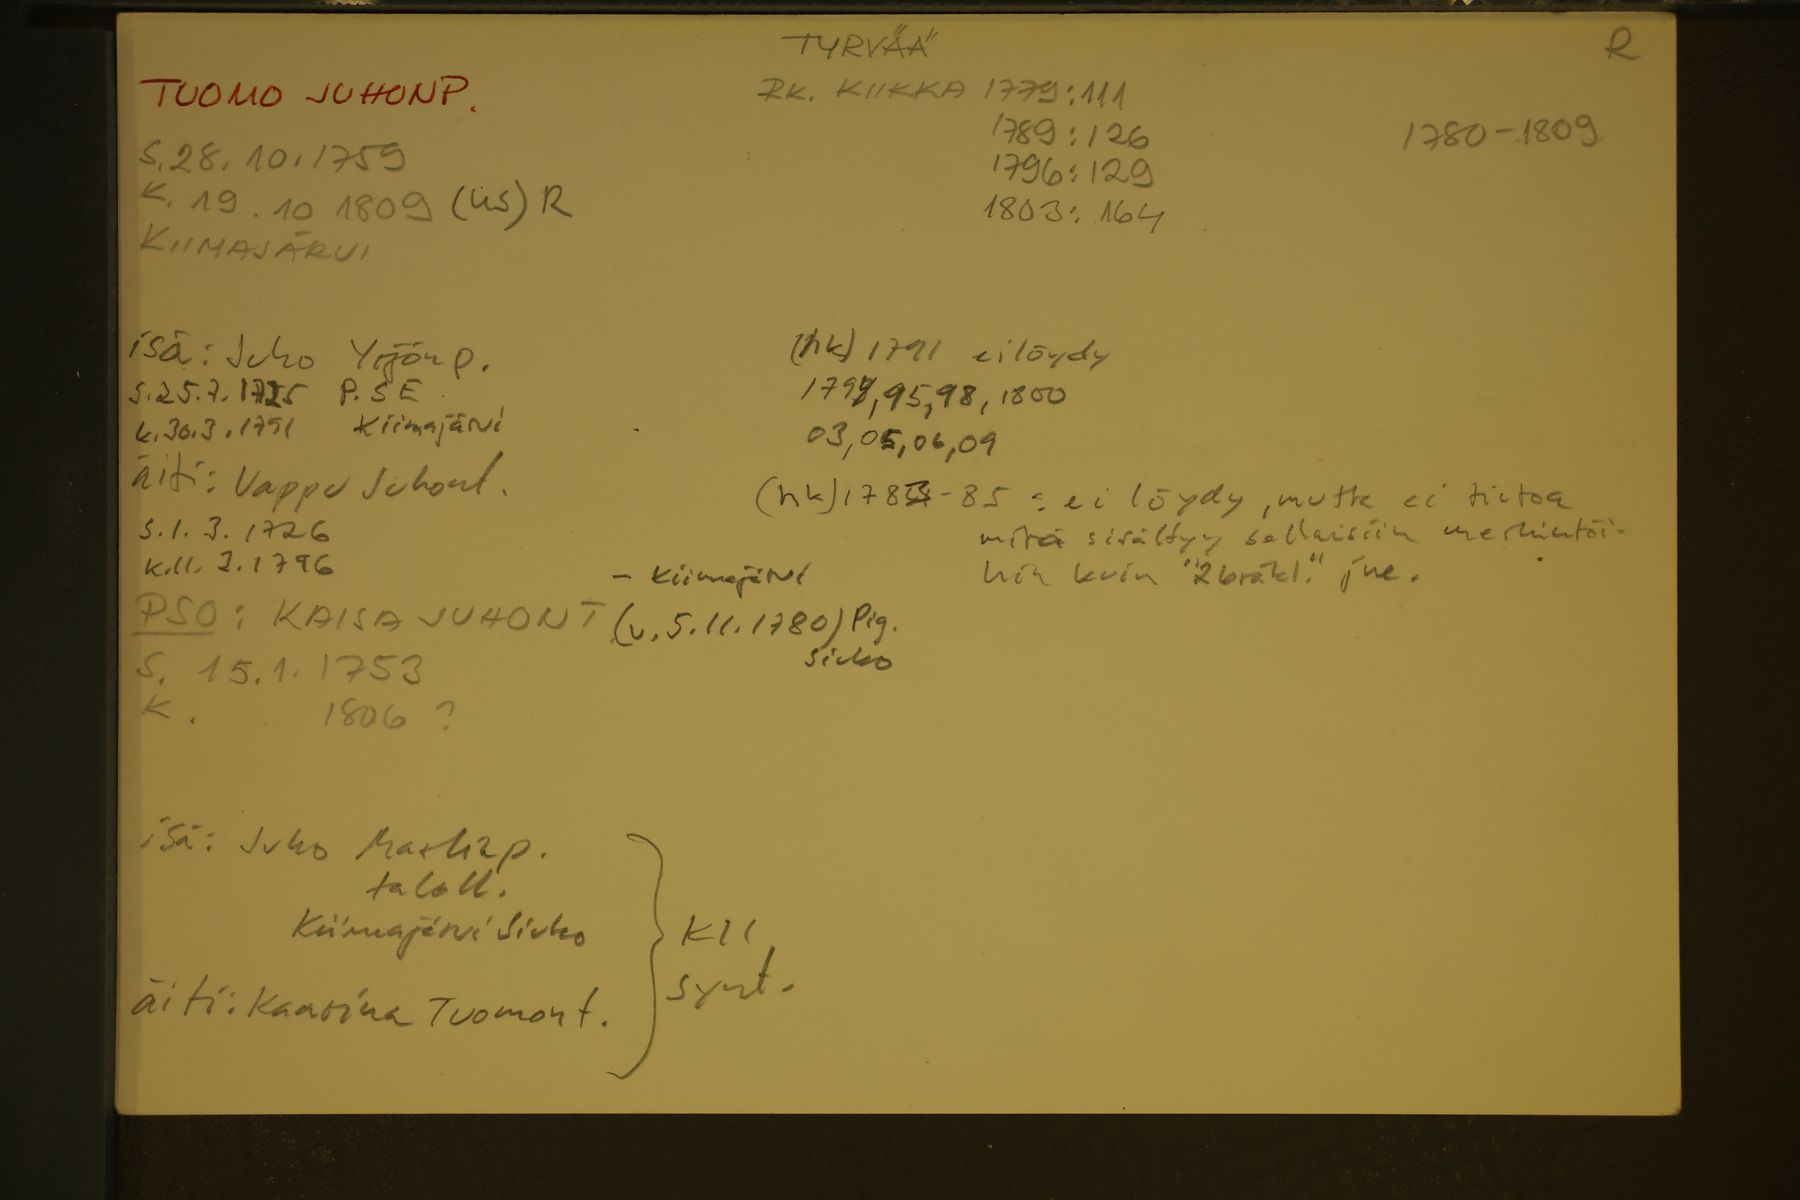 TYRVÄÄ
R
TUOMO JUHONP.
RK. KIIKKA 1779:111
1789:126
1780-1809
S. 28. 10. 1759
1796:129
K. 19. 10 1809 (us) R
1803: 164
KIIMAJÄRVI
isä: Juho Yrjönp.
s. 25.7. 1725 P.SE
k. 30.3. 1791 Kiimajärvi
äiti: Vappu Juhont.
s. 1. 3. 1726
k. 11. 2. 1796
(hk) 1791 ei löydy
1794, 95, 98, 1800
03, 05, 06, 09
(hk) 1783-85 : ei löydy, mutta ei tietoa
mitä sisältyy sellaisiin merkintöi-
hin kuin "2 bräkl." jne.
- Kiimajärvi
PSO: KAISA JUHONT (v. 5.11. 1780) Pig.
Siuko
S. 15.1. 1753
K. 1806 ?
isä: Juho Markp.
taloll.
Kiimajärvi Siuko
äiti: Kaarina Tuomont.
KII
synt.